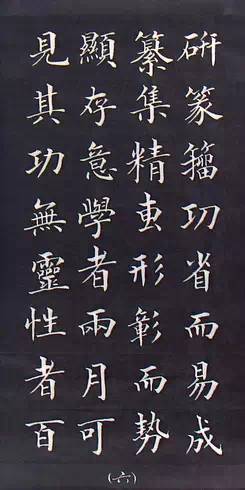 研篆籀功省而易成
纂集精專形彰而勢
顯存意學者兩月可
見其功無靈性者百
(六)